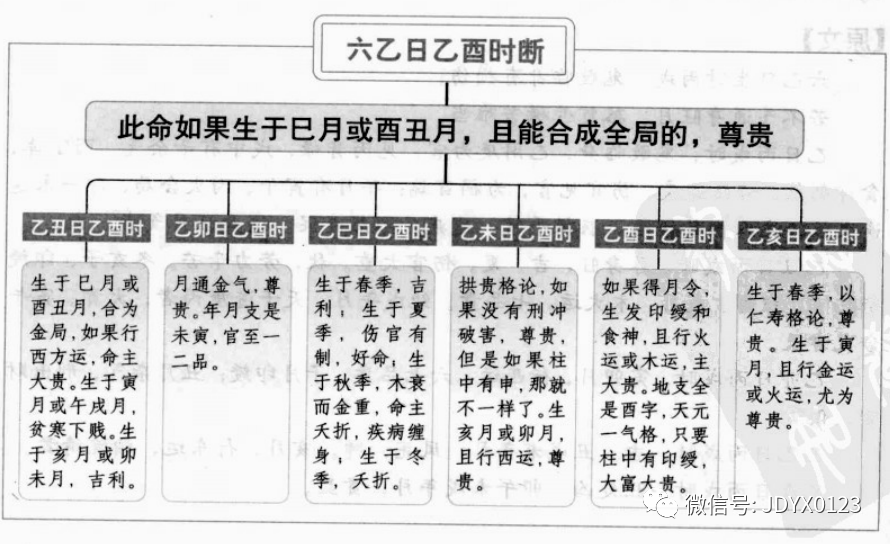 【原文】
六乙日乙酉时断
此命如果生于巳月或酉丑月，且能合成全局的，尊贵
乙丑日乙酉时
生于巳月或
酉丑月，合为
金局，如果行
西方运，命主
大贵。生于寅
月或午戌月，
贫寒下贱。生
于亥月或卯
未月，吉利。
乙卯日乙酉时
月通金气，尊
贵。年月支是
未寅，官至一
二品。
乙巳日乙酉时
生于春季，吉
利；生于夏
季，伤官有
制，好命；生
于秋季，木衰
而金重，命主
夭折，疾病缠
身；生于冬
季，夭折。
乙未日乙酉时
拱贵格论，如
果没有刑冲
破害，尊贵，
但是如果柱
中有申，那就
不一样了。生
亥月或卯月，
且行西运，尊
贵。
乙酉日乙酉时
如果得月令，
生发印绶和
食神，且行火
运或木运，主
大贵。地支全
是酉字，天元
一气格，只要
柱中有印绶，
大富大贵。
乙亥日乙酉时
生于春季，以
仁寿格论，尊
贵。生于寅
月，且行金运
或火运，尤为
尊贵。
微信号: JDYX0123